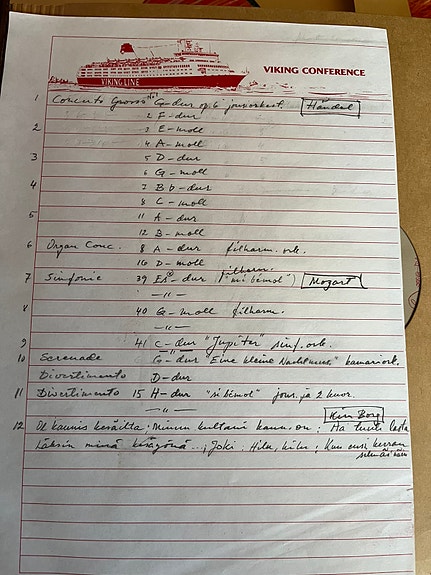 VIKING LINE
VIKING CONFERENCE
1 Concerto Grosso No 1 G-dur op. 6 jousiorkest. Händel
2 F-dur
2 3 E-moll
4 A-moll
3 5 D-dur
6 G-moll
4 7 Bb-dur
8 C-moll
5 11 A-dur
12 B-moll
6 Organ Conc. 8 A-dur filharm. ork.
16 D-moll filharm.
7 Sinfonie 39 Es-dur ("mi bémol") Mozart
-"-
8 40 G-moll filharm.
-"-
9 41 C-dur "Jupiter" sinf. ork.
10 Serenade G-dur "Eine kleine Nachtmus." kamariork.
Divertimento D-dur
11 Divertimento 15 H-dur "si bémol" jous. ja 2
-"-
Kim Borg
12 Oi kaunis kesäilta; Minun kultani kaun. on; Aa tuuti lasta
Läksin minä kesäyönä...; Joki; Hilu, hilu; Kun ensi kerran
silmäs näin